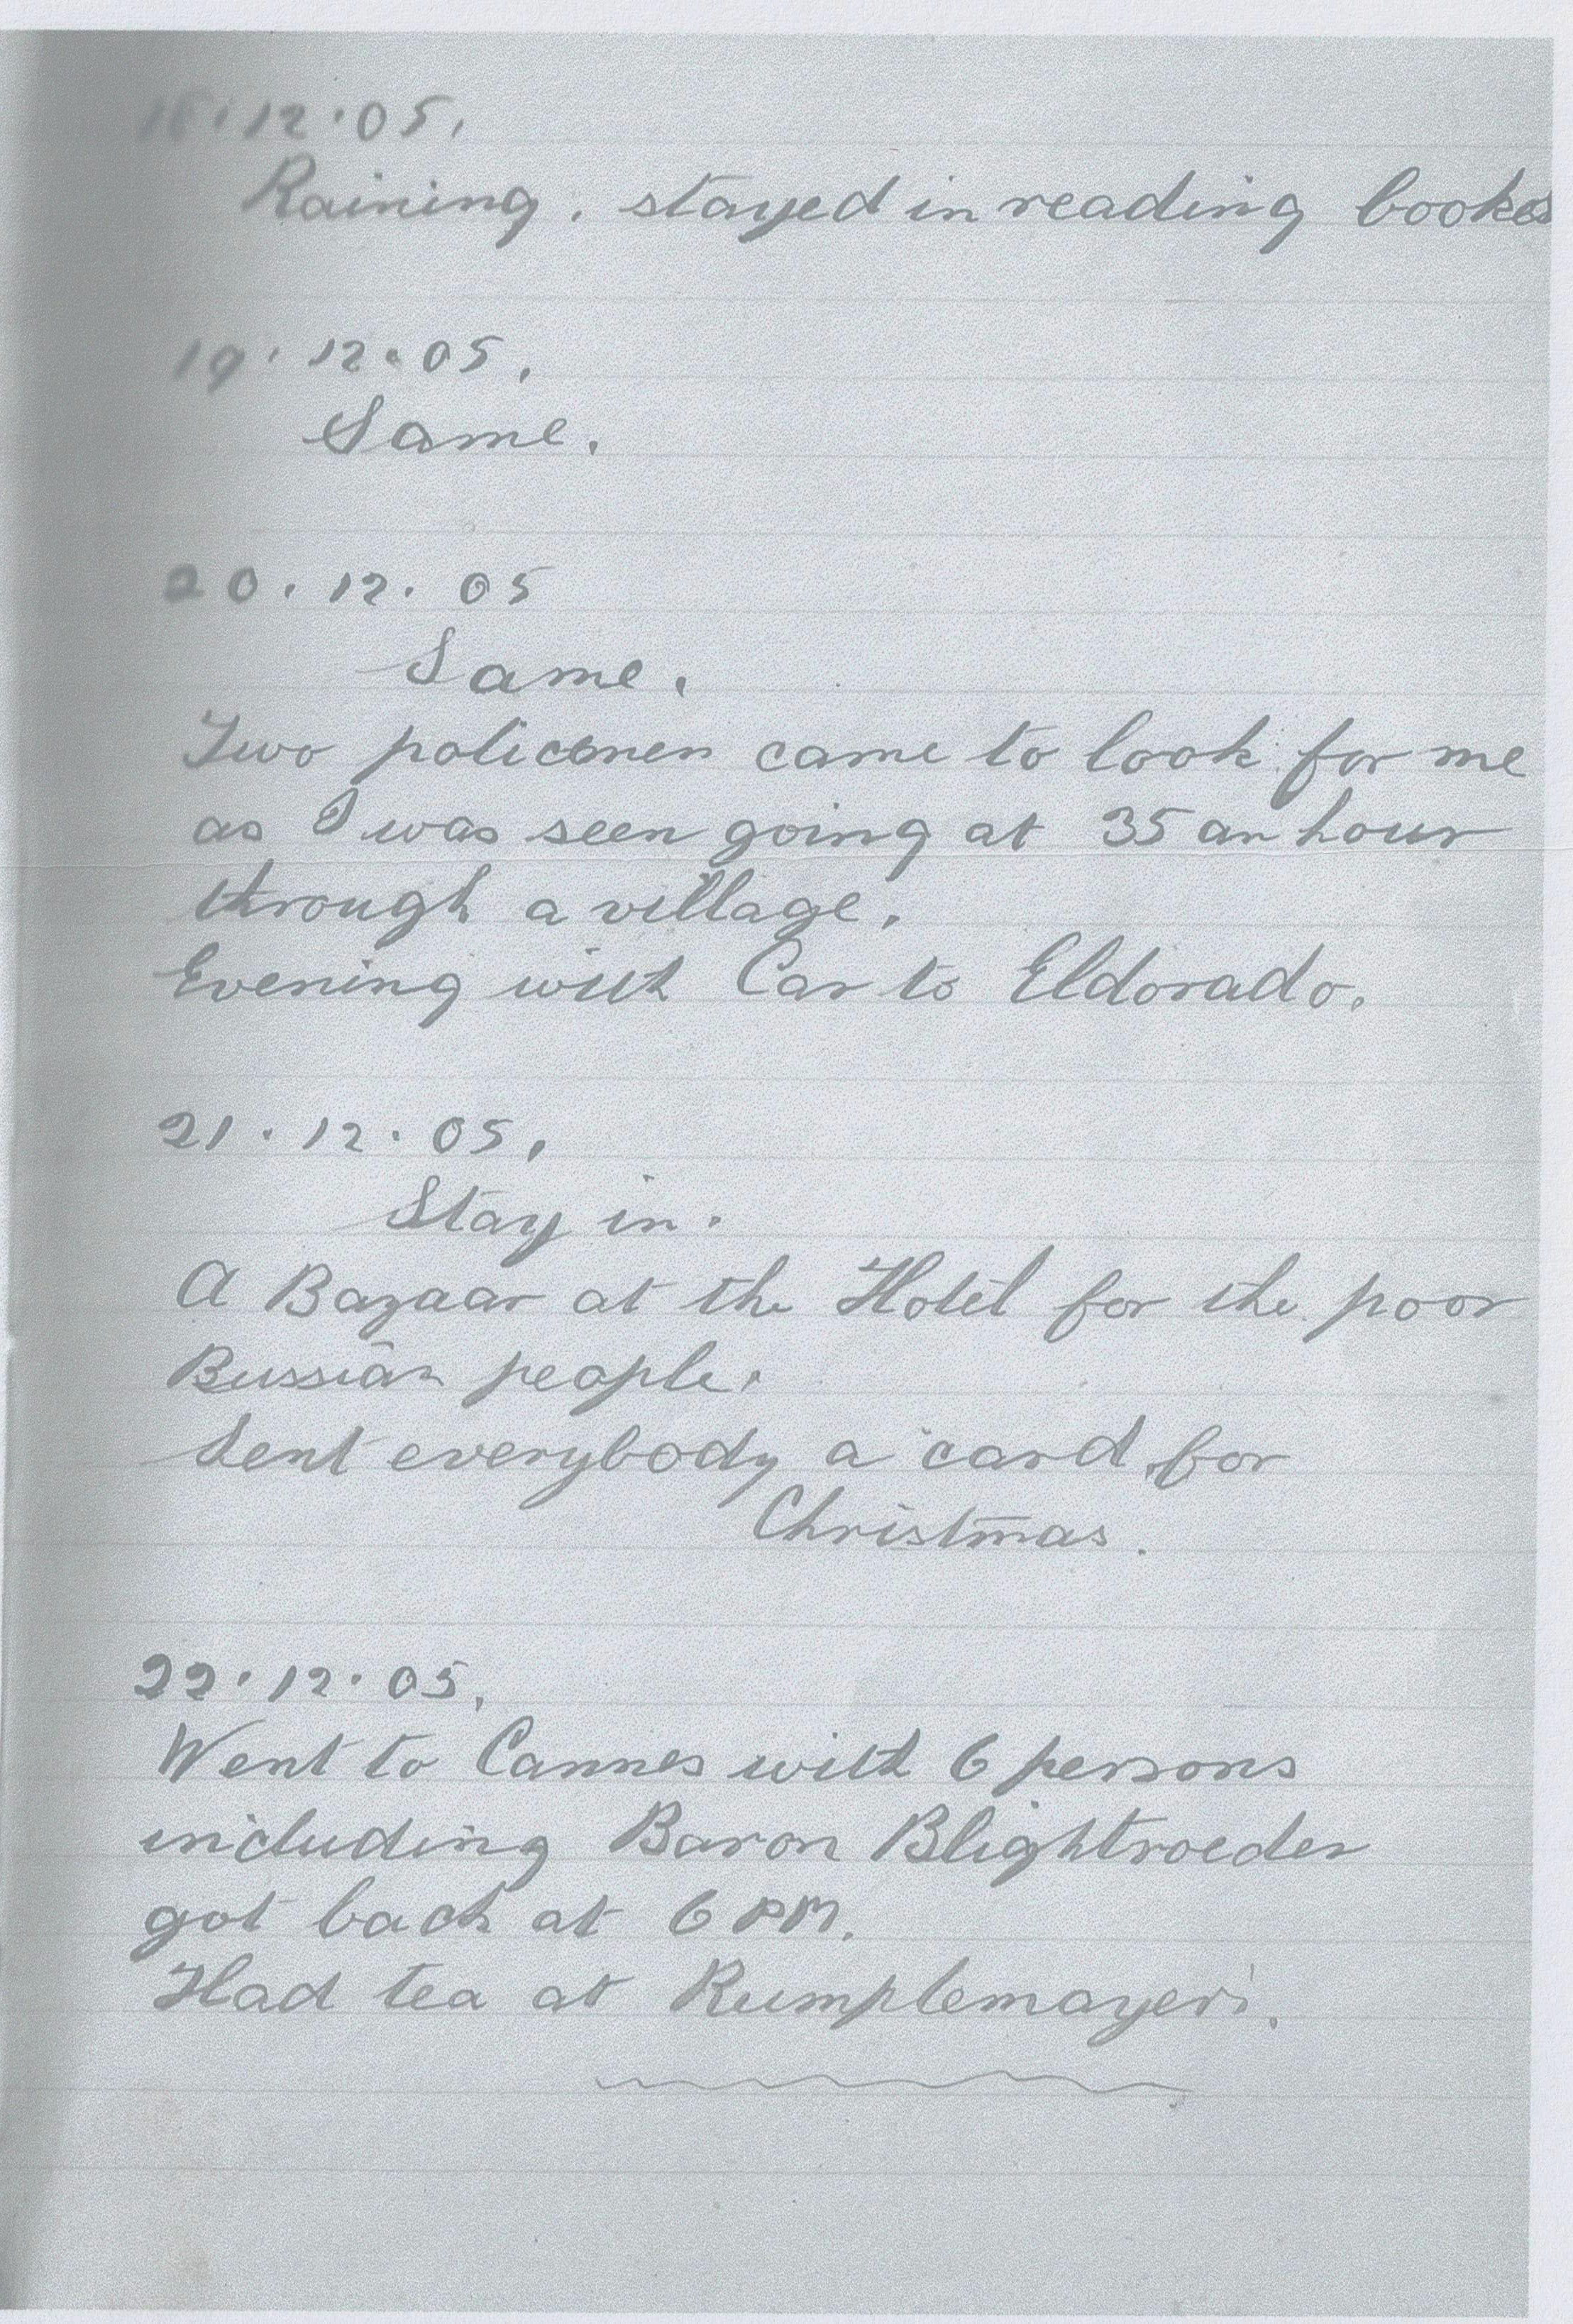 18.12.05.
Raining. stayed in reading books
19.12.05.
Same.
20.12.05
Same.
Two policemen came to look for me
as I was seen going at 35 an hour
through a village.
Evening with Car to Eldorado.
21.12.05.
Stay in.
A Bazaar at the Hotel for the poor
Russian people.
Sent everybody a card for
Christmas.
22.12.05.
Went to Cannes with 6 persons
including Baron Blightroeder
got back at 6 PM.
Had tea at Rumplemayers.